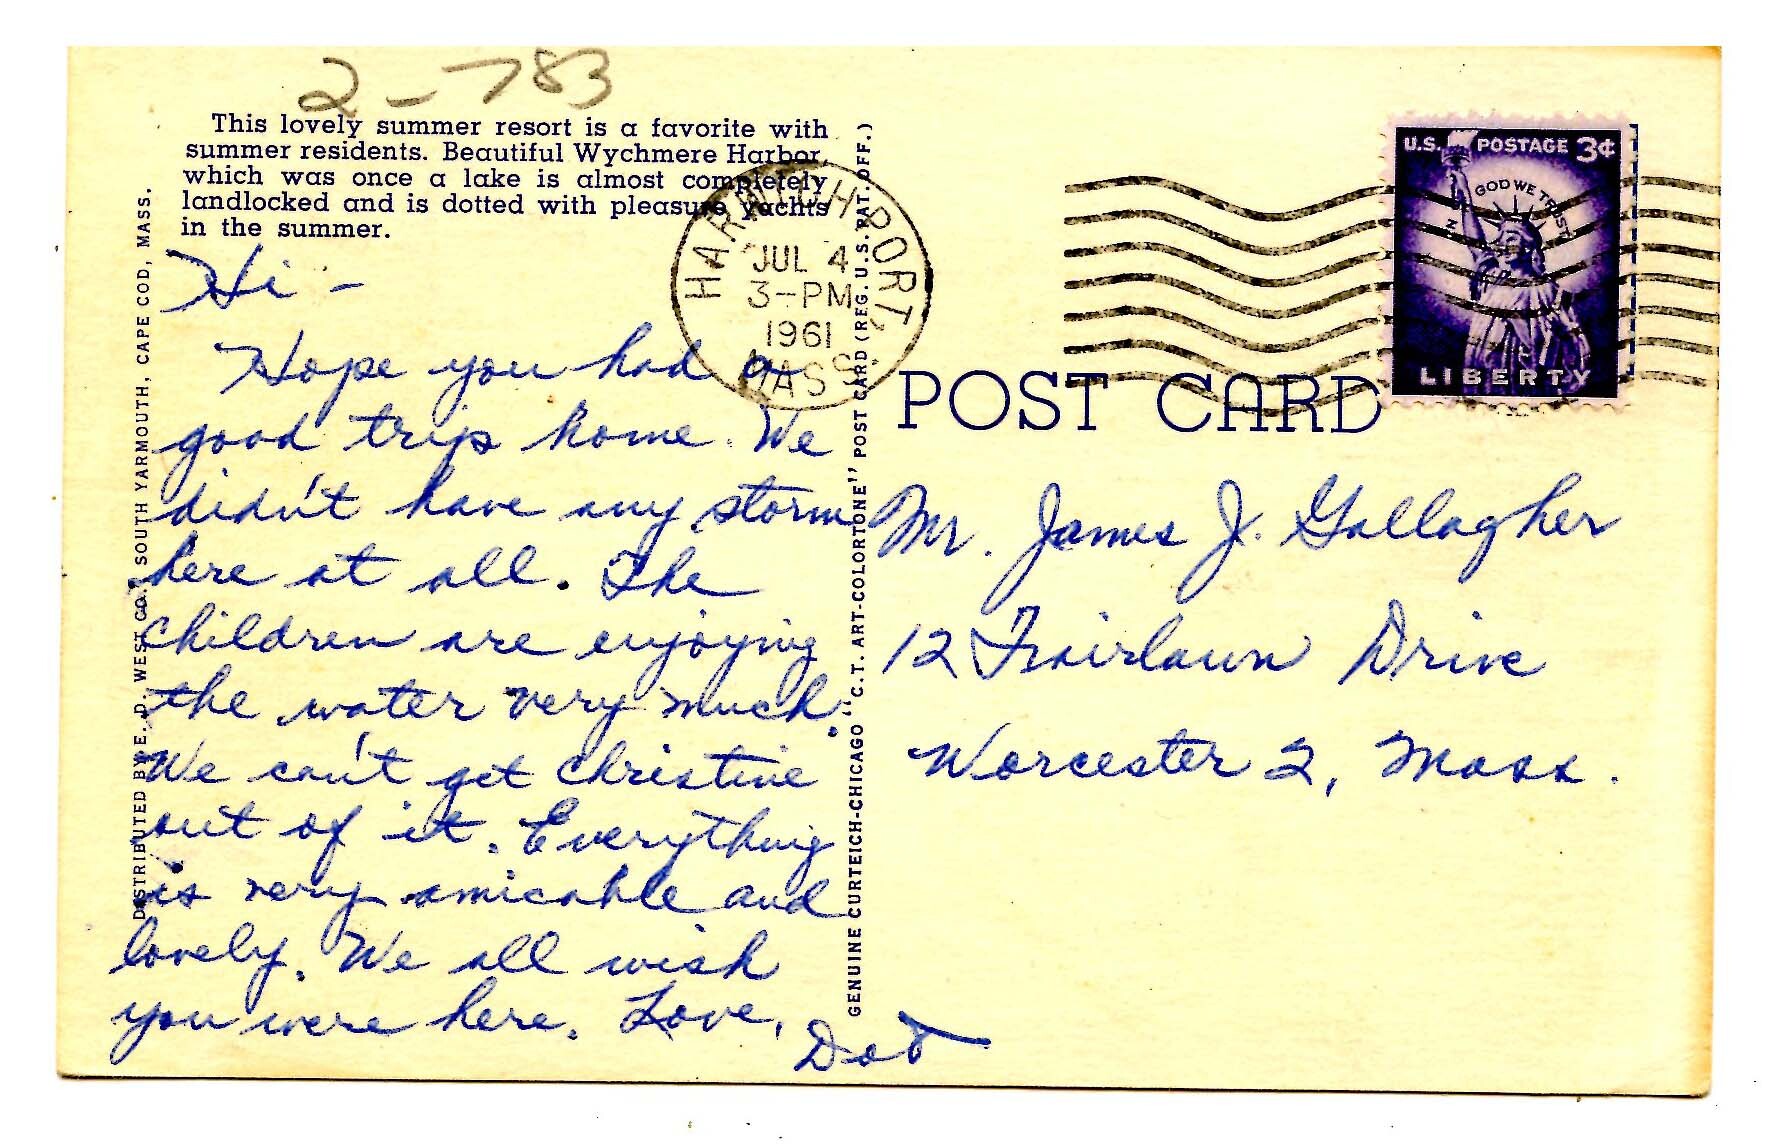 2-783
This lovely summer resort is a favorite with
summer residents. Beautiful Wychmere Harbor,
which was once a lake is almost completely
landlocked and is dotted with pleasure yachts
in the summer.
Hi -
Hope you had a
good trip home. We
didn't have any storm
here at all. The
children are enjoying
the water very much.
We can't get Christine
out of it. Everything
is very amicable and
lovely. We all wish
you were here. Love,
Dot
DISTRIBUTED BY E. D. WEST CO., SOUTH YARMOUTH, CAPE COD, MASS.
GENUINE CURTEICH-CHICAGO "C.T. ART-COLORTONE" POST CARD (REG. U.S. PAT. OFF.)
HARWICH PORT,
JUL 4
3-PM
1961
MASS
U.S. POSTAGE 3¢
IN GOD WE TRUST
LIBERTY
POST CARD
Mr. James J. Gallagher
12 Fairlawn Drive
Worcester 2, Mass.